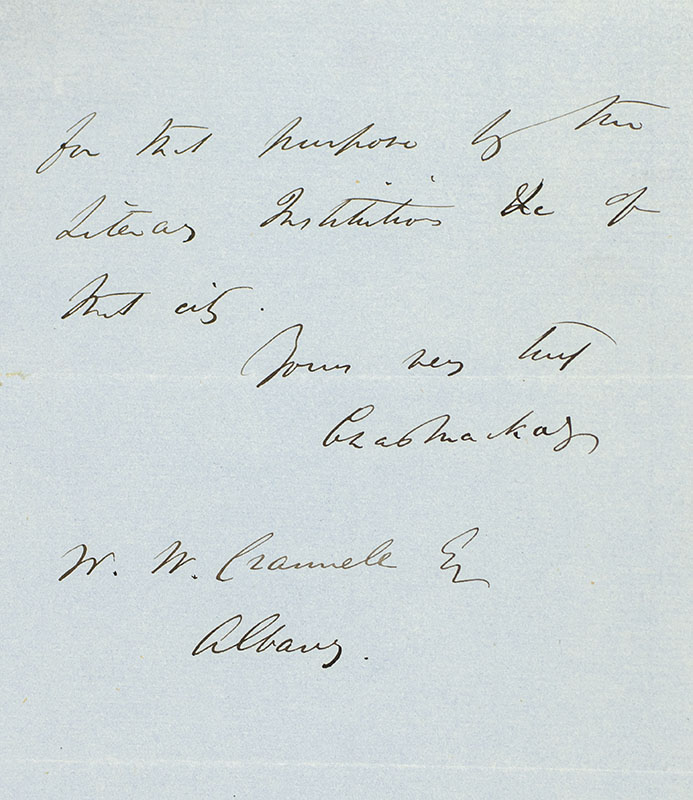 for that purpose by the
Literary Institutions &c of
that city.
Yours very truly
Chas Mackay
W. W. Crannell Esq
Albany.